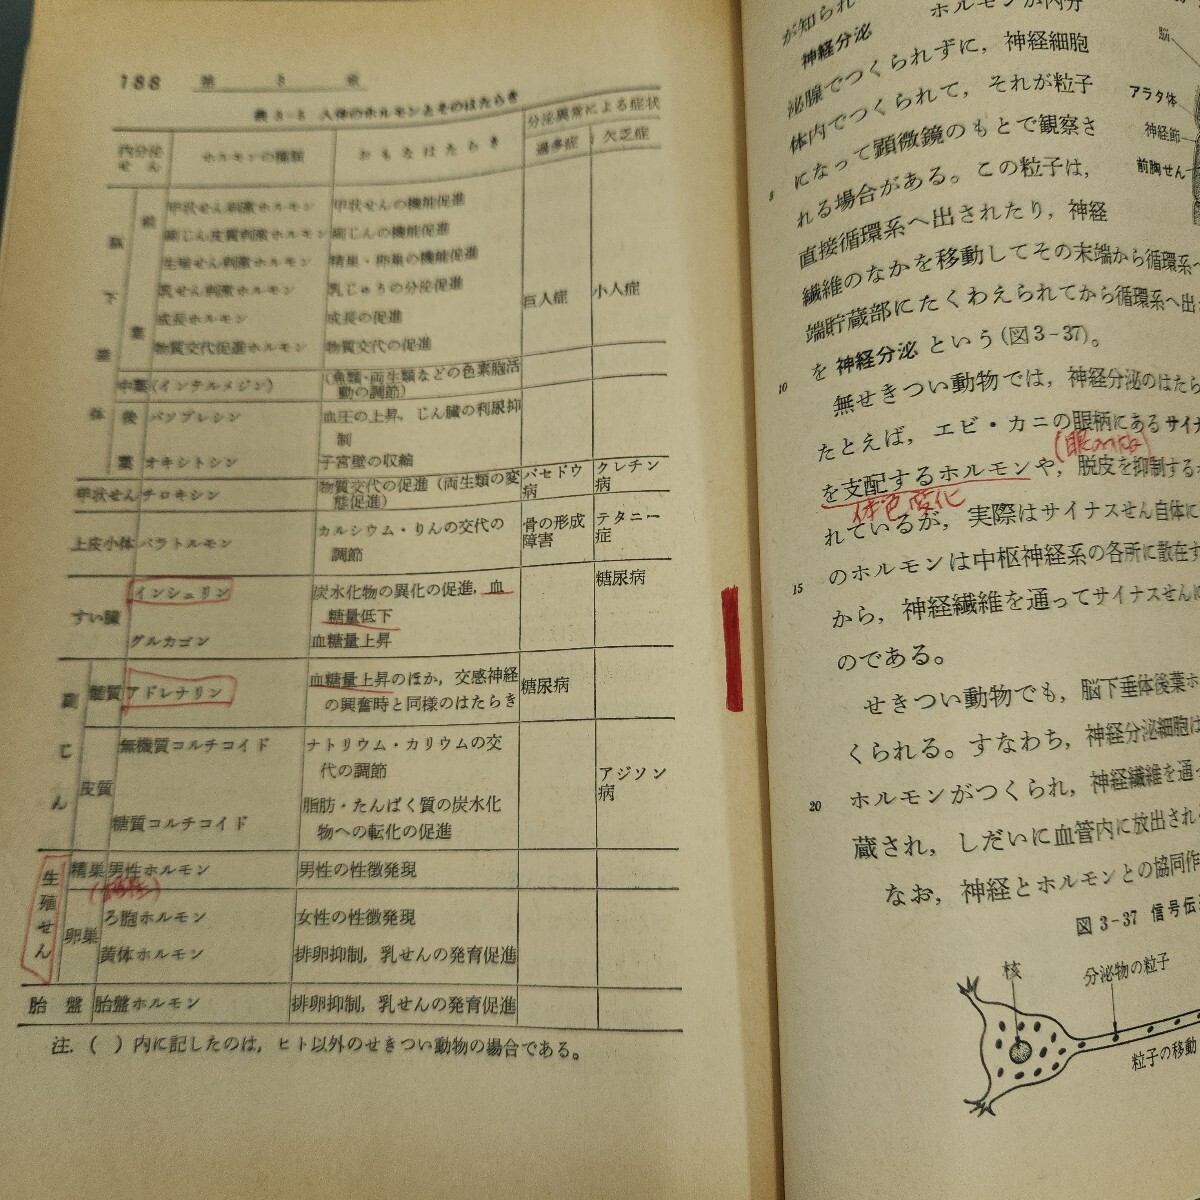 188 第 3 章
表 3-5 人体のホルモンとそのはたらき
内分泌せん ホルモンの種類 おもなはたらき 分泌異常による症状
過多症 欠乏症
脳下垂体
前葉
甲状せん刺激ホルモン 甲状せんの機能促進
副じん皮質刺激ホルモン 副じんの機能促進
生殖せん刺激ホルモン 精巣・卵巣の機能促進
乳せん刺激ホルモン 乳じゅうの分泌促進
成長ホルモン 成長の促進 巨人症 小人症
物質交代促進ホルモン 物質交代の促進
中葉 (インテルメジン) (魚類・両生類などの色素胞活
動の調節)
後葉 バソプレシン 血圧の上昇，じん臓の利尿抑
制
オキシトシン 子宮壁の収縮
甲状せん チロキシン 物質交代の促進（両生類の変
態促進） バセドウ病 クレチン病
上皮小体 パラトルモン カルシウム・りんの交代の
調節 骨の形成障害 テタニー症
すい臓 インシュリン 炭水化物の異化の促進，血
糖量低下 糖尿病
グルカゴン 血糖量上昇
副じん
髄質 アドレナリン 血糖量上昇のほか，交感神経
の興奮時と同様のはたらき 糖尿病
皮質 無機質コルチコイド ナトリウム・カリウムの交
代の調節 アジソン病
糖質コルチコイド 脂肪・たんぱく質の炭水化
物への転化の促進
生殖せん
精巣 男性ホルモン 男性の性徴発現
卵巣 ろ胞ホルモン 女性の性徴発現
黄体ホルモン 排卵抑制，乳せんの発育促進
胎盤 胎盤ホルモン 排卵抑制，乳せんの発育促進
注．（ ）内に記したのは，ヒト以外のせきつい動物の場合である。
が知られ
神経分泌 ホルモンが内分
泌腺でつくられずに，神経細胞
体内でつくられて，それが粒子
になって顕微鏡のもとで観察さ
5
れる場合がある。この粒子は，
直接循環系へ出されたり，神経
繊維のなかを移動してその末端から循環系へ
端貯蔵部にたくわえられてから循環系へ出さ
を 神経分泌 という(図3-37)。
10
無せきつい動物では，神経分泌のはたら
たとえば，エビ・カニの眼柄にあるサイナ
を支配するホルモンや，脱皮を抑制する
体色変化
れているが，実際はサイナスせん自体に
のホルモンは中枢神経系の各所に散在す
15
から，神経繊維を通ってサイナスせんに
のである。
せきつい動物でも，脳下垂体後葉ホ
くられる。すなわち，神経分泌細胞は
ホルモンがつくられ，神経繊維を通っ
20
蔵され，しだいに血管内に放出され
なお，神経とホルモンとの協同作
脳
アラタ体
神経節
前胸せん
図 3-37 信号伝
核
分泌物の粒子
粒子の移動